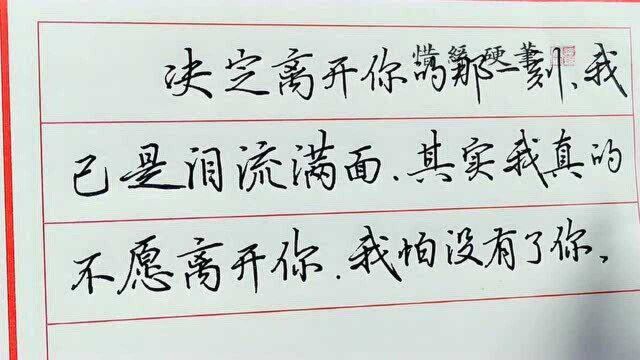 决定离开你的那一刻、我
已是泪流满面.其实我真的
不愿离开你.我怕没有了你,